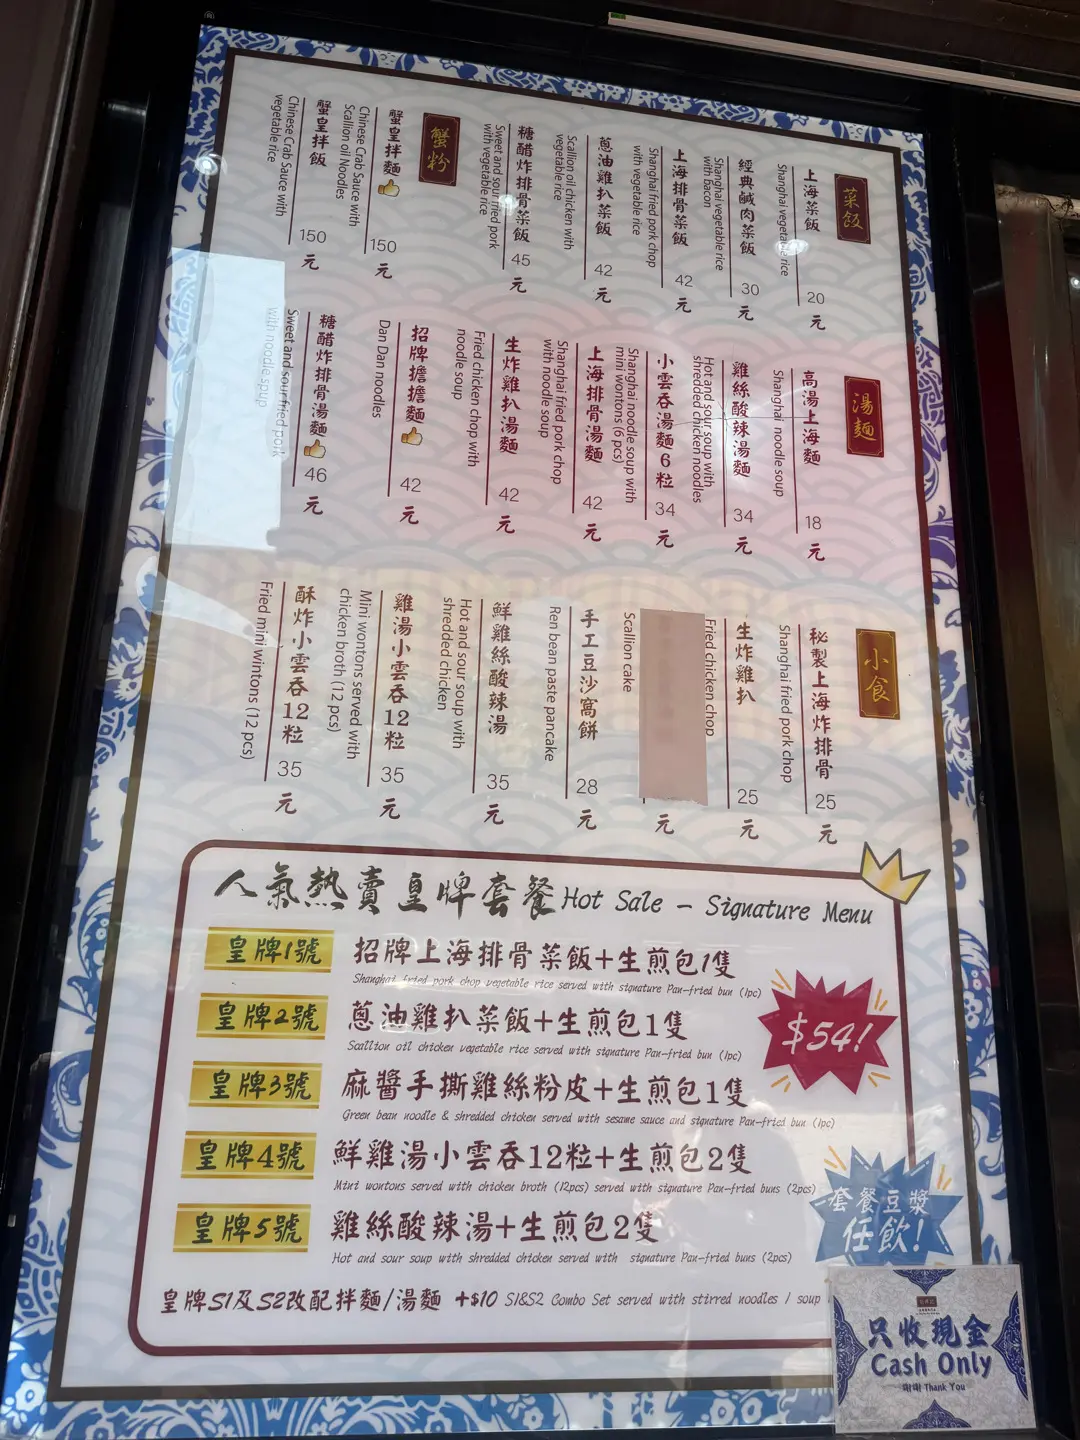 菜飯
上海菜飯 20元
Shanghai vegetable rice
經典鹹肉菜飯 30元
Shanghai vegetable rice
with bacon
上海排骨菜飯 42元
Shanghai fried pork chop
with vegetable rice
蔥油雞扒菜飯 42元
Scallion oil chicken with
vegetable rice
糖醋炸排骨菜飯 45元
Sweet and sour fried pork
with vegetable rice
蟹粉
蟹皇拌麵 150元
Chinese Crab Sauce with
Scallion oil Noodles
蟹皇拌飯 150元
Chinese Crab Sauce with
vegetable rice
湯麵
高湯上海麵 18元
Shanghai noodle soup
雞絲酸辣湯麵 34元
Hot and sour soup with
shredded chicken noodles
小雲吞湯麵6粒 34元
Shanghai noodle soup with
mini wontons (6 pcs)
上海排骨湯麵 42元
Shanghai fried pork chop
with noodle soup
生炸雞扒湯麵 42元
Fried chicken chop with
noodle soup
招牌擔擔麵 42元
Dan Dan noodles
糖醋炸排骨湯麵 46元
Sweet and sour fried pork
with noodle soup
小食
秘製上海炸排骨 25元
Shanghai fried pork chop
生炸雞扒 25元
Fried chicken chop
元
Scallion cake
手工豆沙窩餅 28元
Ren bean paste pancake
鮮雞絲酸辣湯 35元
Hot and sour soup with
shredded chicken
雞湯小雲吞12粒 35元
Mini wontons served with
chicken broth (12 pcs)
酥炸小雲吞12粒 35元
Fried mini wintons (12 pcs)
人氣熱賣皇牌套餐 Hot Sale - Signature Menu
皇牌1號 招牌上海排骨菜飯+生煎包1隻
Shanghai fried pork chop vegetable rice served with signature Pan-fried bun (1pc)
皇牌2號 蔥油雞扒菜飯+生煎包1隻
Scallion oil chicken vegetable rice served with signature Pan-fried bun (1pc)
$54!
皇牌3號 麻醬手撕雞絲粉皮+生煎包1隻
Green bean noodle & shredded chicken served with sesame sauce and signature Pan-fried bun (1pc)
皇牌4號 鮮雞湯小雲吞12粒+生煎包2隻
Mini wontons served with chicken broth (12pcs) served with signature Pan-fried buns (2pcs)
皇牌5號 雞絲酸辣湯+生煎包2隻
Hot and sour soup with shredded chicken served with signature Pan-fried buns (2pcs)
套餐豆漿
任飲!
皇牌S1及S2改配拌麵/湯麵 +$10 S1&S2 Combo Set served with stirred noodles / soup
只收現金
Cash Only
謝謝 Thank You